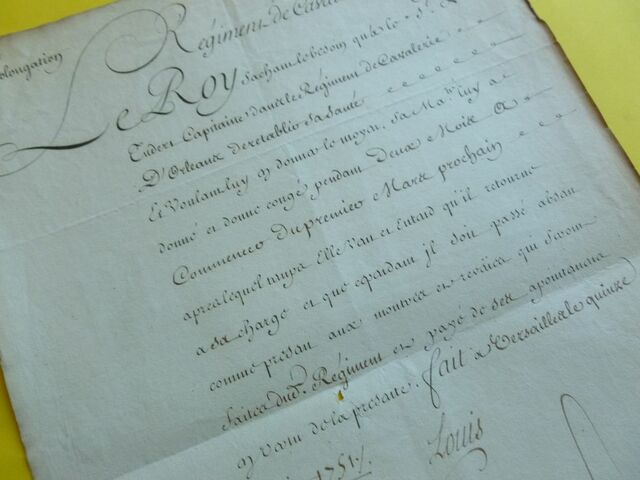 olongation
Régiment de Caval
Le Roy Sachant le besoin qu'a le S.r
Endert Capitaine dans le Régiment de Cavalerie
D'Orleans de retablir sa santé
Et Voulant luy y donner le moyen, Sa Ma.té luy a
donné et donne congé pendant Deux Mois A
Commencer Du premier Mars prochain
apres lequel temps Elle Veut et Entend qu'il retourne
a sa charge et que cependant il soit passé absent
comme present aux montres et reveües qui seront
faites dud. Régiment et payé de ses apointemens
en vertu de la presente. fait a Versailles le quinze
1751.
Louis